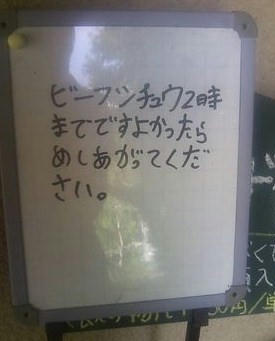 ビーフシチュウ2時
までですよかったら
めしあがってくだ
さい。